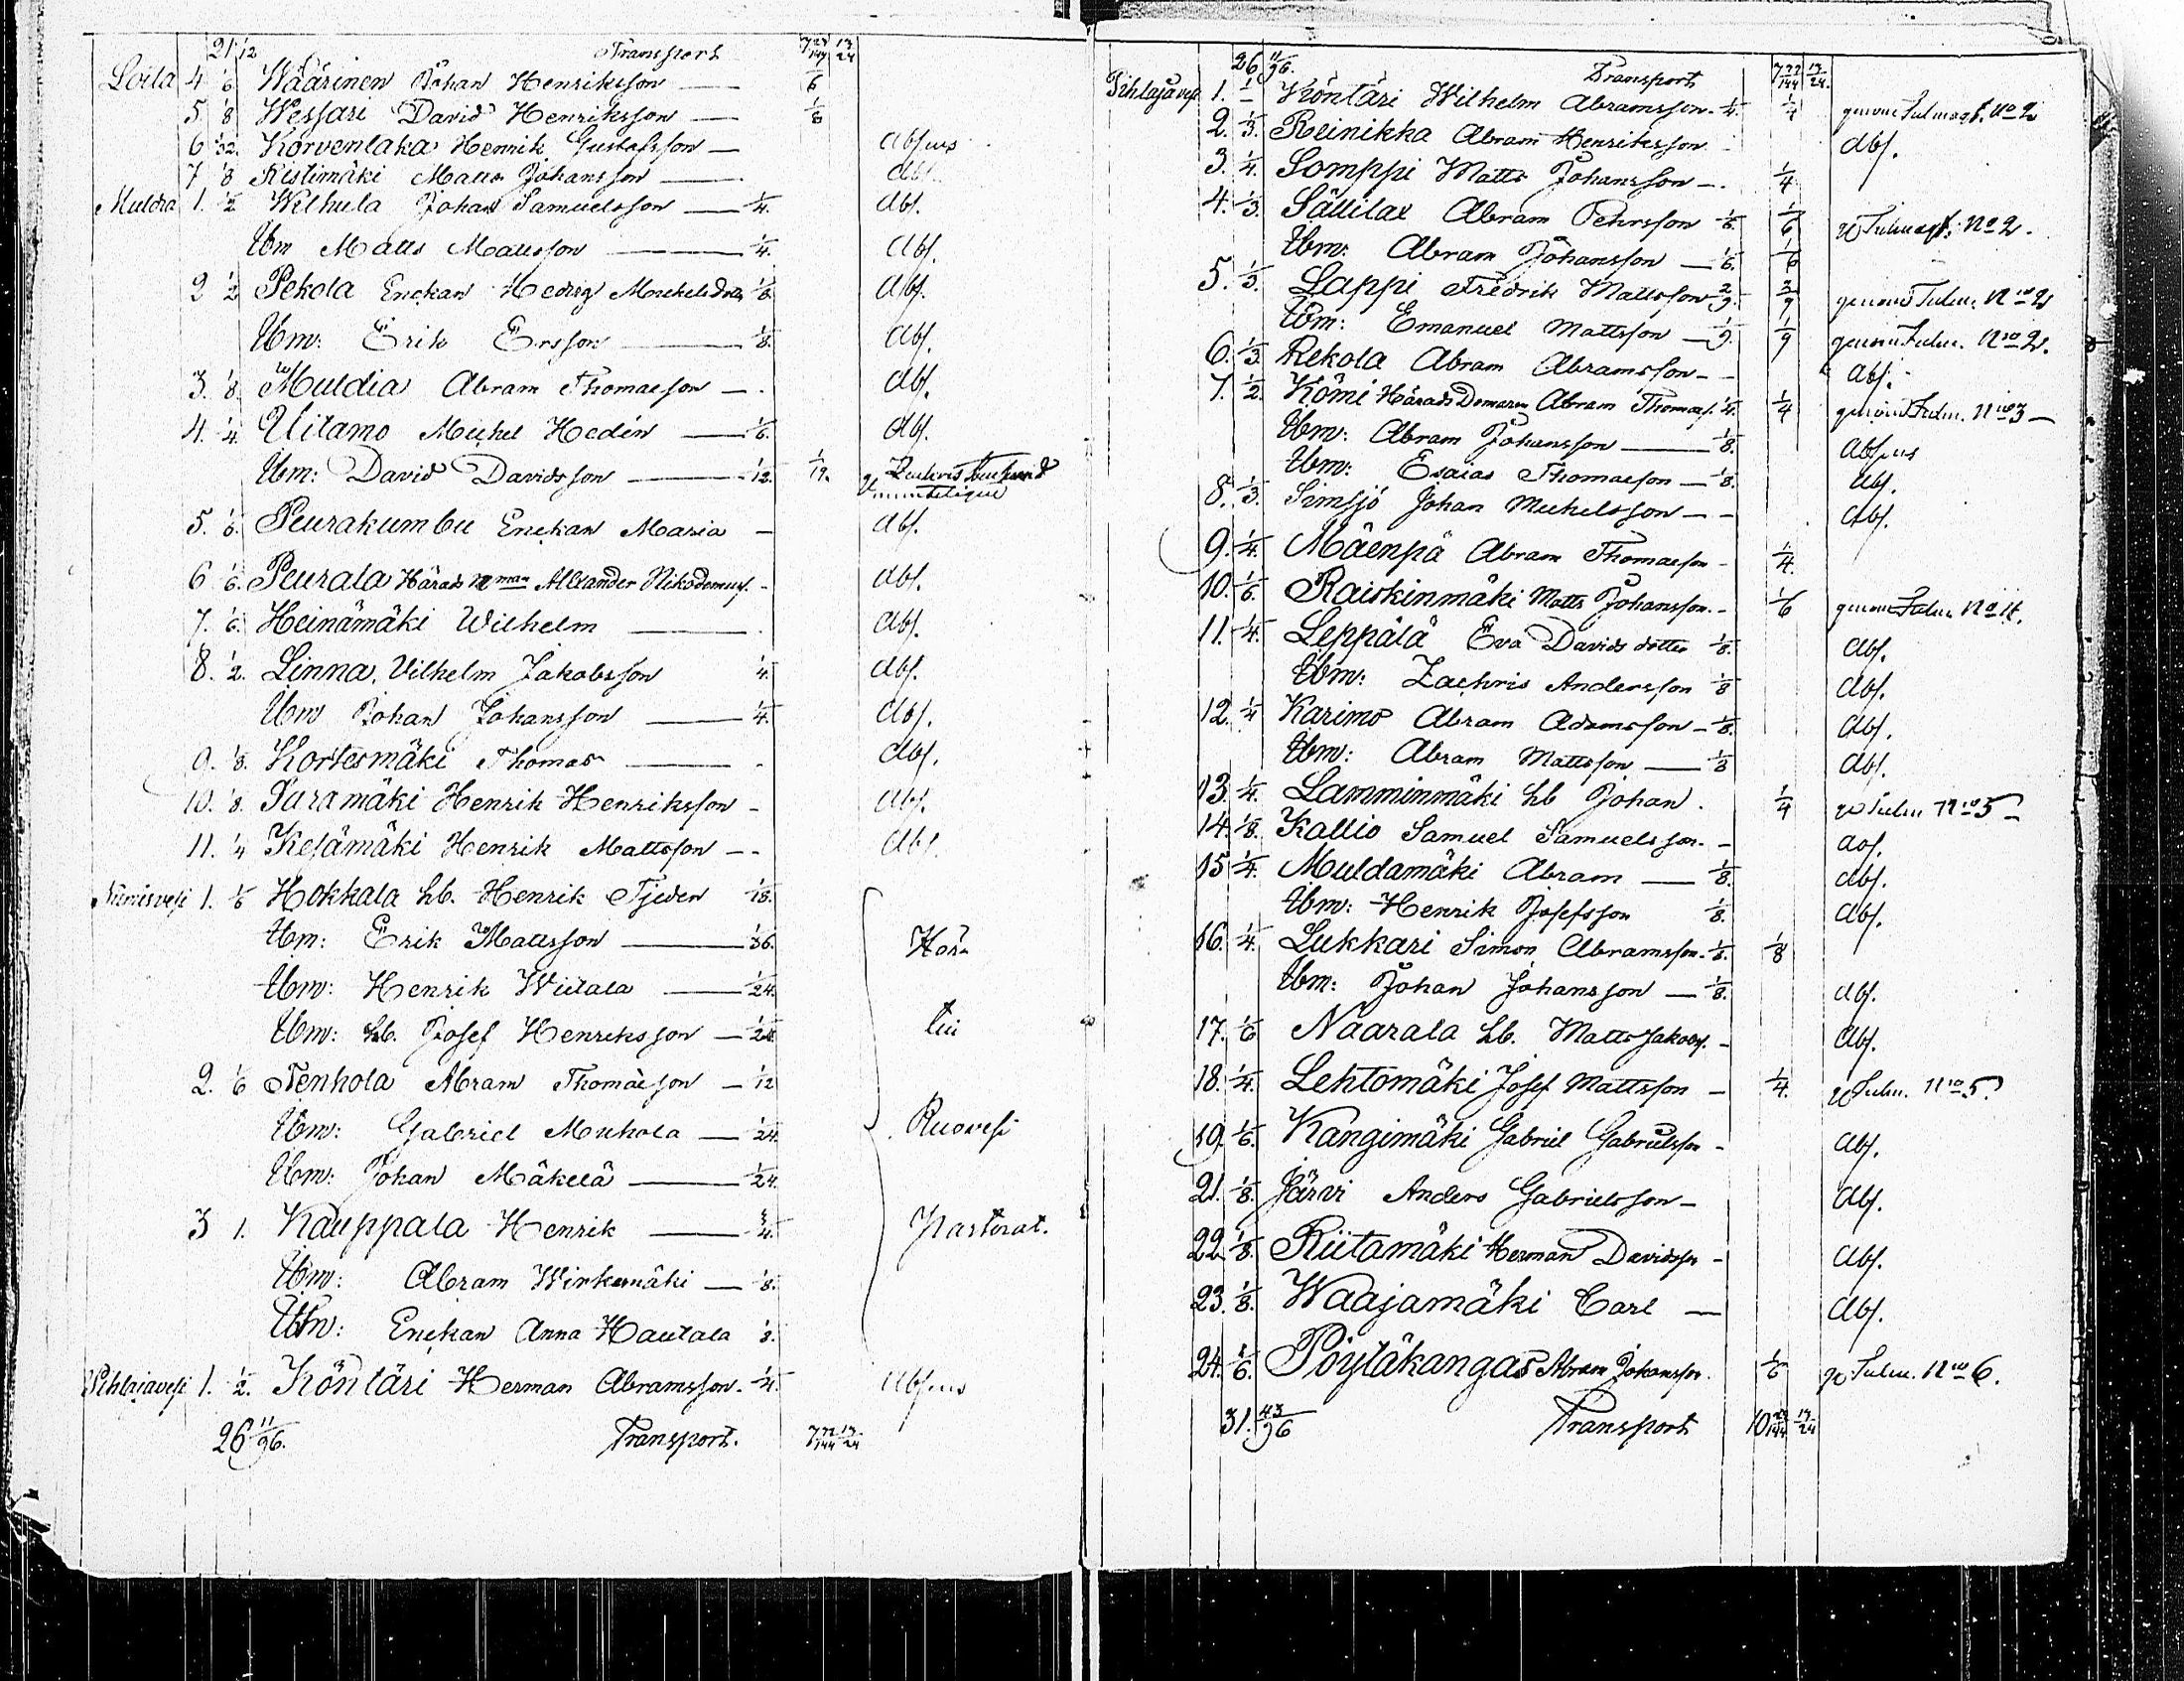 21 1/12 Transport 7 77/144 13/24
Loila 4 1/6 Wäärinen Johan Henriksson — 1/6
5 1/8 Wessari David Henriksson — 1/8
6 1/32 Korvenlaka Henrik Gustafsson — Absens
7 1/8 Ristimäki Matts Johansson — Abs.
Muldia 1. 1/2 Wilhula Johan Samuelsson — 1/4. Abs.
Ibm Matts Mattsson — 1/4. Abs.
2 1/2 Pekola Enckan Hedvig Michelsdotter Abs.
Ibm: Erik Ersson — 1/8. Abs.
3. 1/8 Muldia Abram Thomasson — Abs.
4. 1/4 Uitamo Michel Hedén — 1/6. Abs.
Ibm: David Davidsson — 1/12. 1/12.
5. 1/6. Peurakumbu Enckan Maria — Abs.
6 1/6. Peurala Härads Nman Alexander Nikodemuss. - Abs.
7. 1/6. Heinämäki Wilhelm — Abs.
8. 1/2. Linna, Vilhelm Jakobsson 1/4. Abs.
Ibm Johan Johansson — 1/4. Abs.
9. 1/8. Kortesmäki Thomas — Abs.
10. 1/8. Paramäki Henrik Henriksson - Abs.
11. 1/4 Kesämäki Henrik Mattsson -- Abs.
1. 1/6 Hokkala Lb. Henrik Tjeder 1/18.
Ibm: Erik Mattsson — 1/36. Hör
Ibm: Henrik Wiitala — 1/24.
Ibm: Lb. Josef Henriksson — 1/24. till
2. 1/6 Tenhola Abram Thomasson — 1/12
Ibm: Gabriel Mukola — 1/24. Ruovesi
Ibm: Johan Mäkelä — 1/24.
3 1. Kauppala Henrik — 3/4. Pastorat.
Ibm: Abram Wirkamäki — 1/8.
Ibm: Enckan Anna Hautala 1/8.
Pihlajavesi 1. 1/2. Köntäri Herman Abramsson. 1/4. Absens
26 11/96. Transport. 7 77/144 13/24
26 11/96. Transport 7 77/144 13/24.
Pihlajavesi 1. Köntäri Wilhelm Abramsson. 1/4. 1/4 No 2
2. 1/3. Reinikka Abram Henriksson Abs.
3. 1/4. Somppi Matts Johansson — 1/4
4. 1/3. Sällilax Abram Pehrsson 1/6 1/6 No 2.
Ibm: Abram Johansson — 1/6. 1/6
5. 1/3. Lappi Fredrik Mattsson 2/9. 2/9 No 2
Ibm: Emanuel Mattsson — 1/9. 1/9 No 2.
6. 1/3. Rekola Abram Abramsson - - Abs.
7. 1/2. Kömi Härads Domaren Abram Thomass. 1/4. 1/4 No 3 —
Ibm: Abram Johansson — 1/8. Absens
Ibm: Esaias Thomasson — 1/8. Abs.
8. 1/3. Simsjö Johan Michelsson — - Abs.
9. 1/4. Mäenpä Abram Thomasson - 1/4.
10. 1/6. Raiskinmäki Matts Johansson. - 1/6
11. 1/4. Leppälä Eva Davids dotter 1/8. Abs.
Ibm: Zachris Andersson 1/8 Abs.
12. 1/4 Karimo Abram Adamsson - 1/8. Abs.
Ibm: Abram Mattsson — 1/8 Abs.
13. 1/4. Lamminmäki Lb Johan. 1/4 No 5 —
14. 1/8. Kallio Samuel Samuelsson. - Abs.
15 1/4. Muldamäki Abram — 1/8. Abs.
Ibm: Henrik Josefsson 1/8. Abs.
16. 1/4. Lukkari Simon Abramsson. 1/8. 1/8
Ibm: Johan Johansson — 1/8. Abs.
17. 1/6 Naarala Lb. Matts Jakobss. - Abs.
18. 1/4. Lehtomäki Josef Mattsson - 1/4. No 5.
19. 1/6. Kangimäki Gabriel Gabrielsson - Abs.
21. 1/8. Järvi Anders Gabrielsson - Abs.
22. 1/8. Riitamäki Herman Davidsson - Abs.
23. 1/8. Waajamäki Carl — Abs.
24. 1/6. Pöytäkangas Abram Johansson. 1/6 No 6.
31. 43/96 Transport